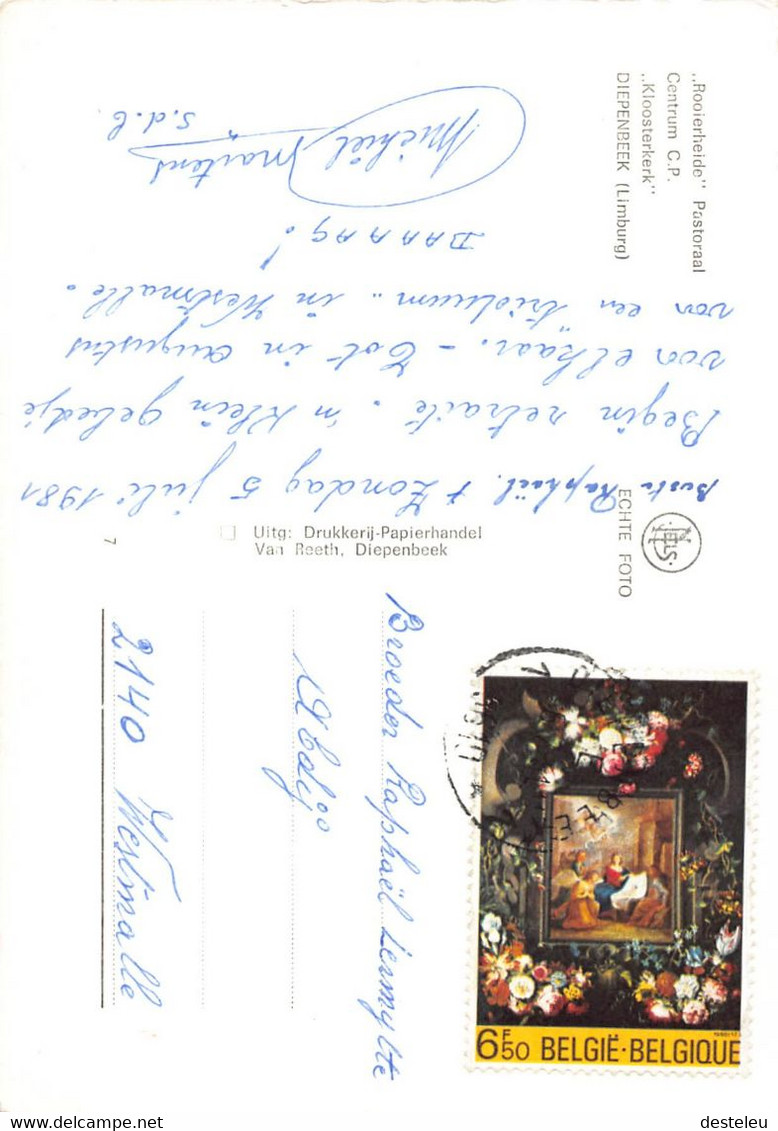 „Rooierheide" Pastoraal
Centrum C.P.
„Kloosterkerk"
DIEPENBEEK (Limburg)
ECHTE FOTO
Uitg: Drukkerij-Papierhandel
Van Reeth, Diepenbeek
7
Beste Raphaël. + Zondag 5 juli 1981
Begin retraite. 'n klein gebedje
voor elkaar. - Tot in augustus
van een „triduum„ in Westmalle.
DAAAAG!
Michiel Martens
s.d.b.
Broeder Raphaël Lermytte
Abdij
2140 Westmalle
6F50 BELGIË·BELGIQUE
desteleu